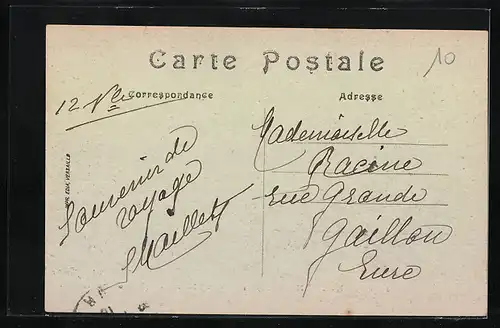 Carte Postale
10
Correspondance
Adresse
Souvenir de
voyage
Maillet
Mademoiselle
Racine
Rue Grande
Gaillon
Eure